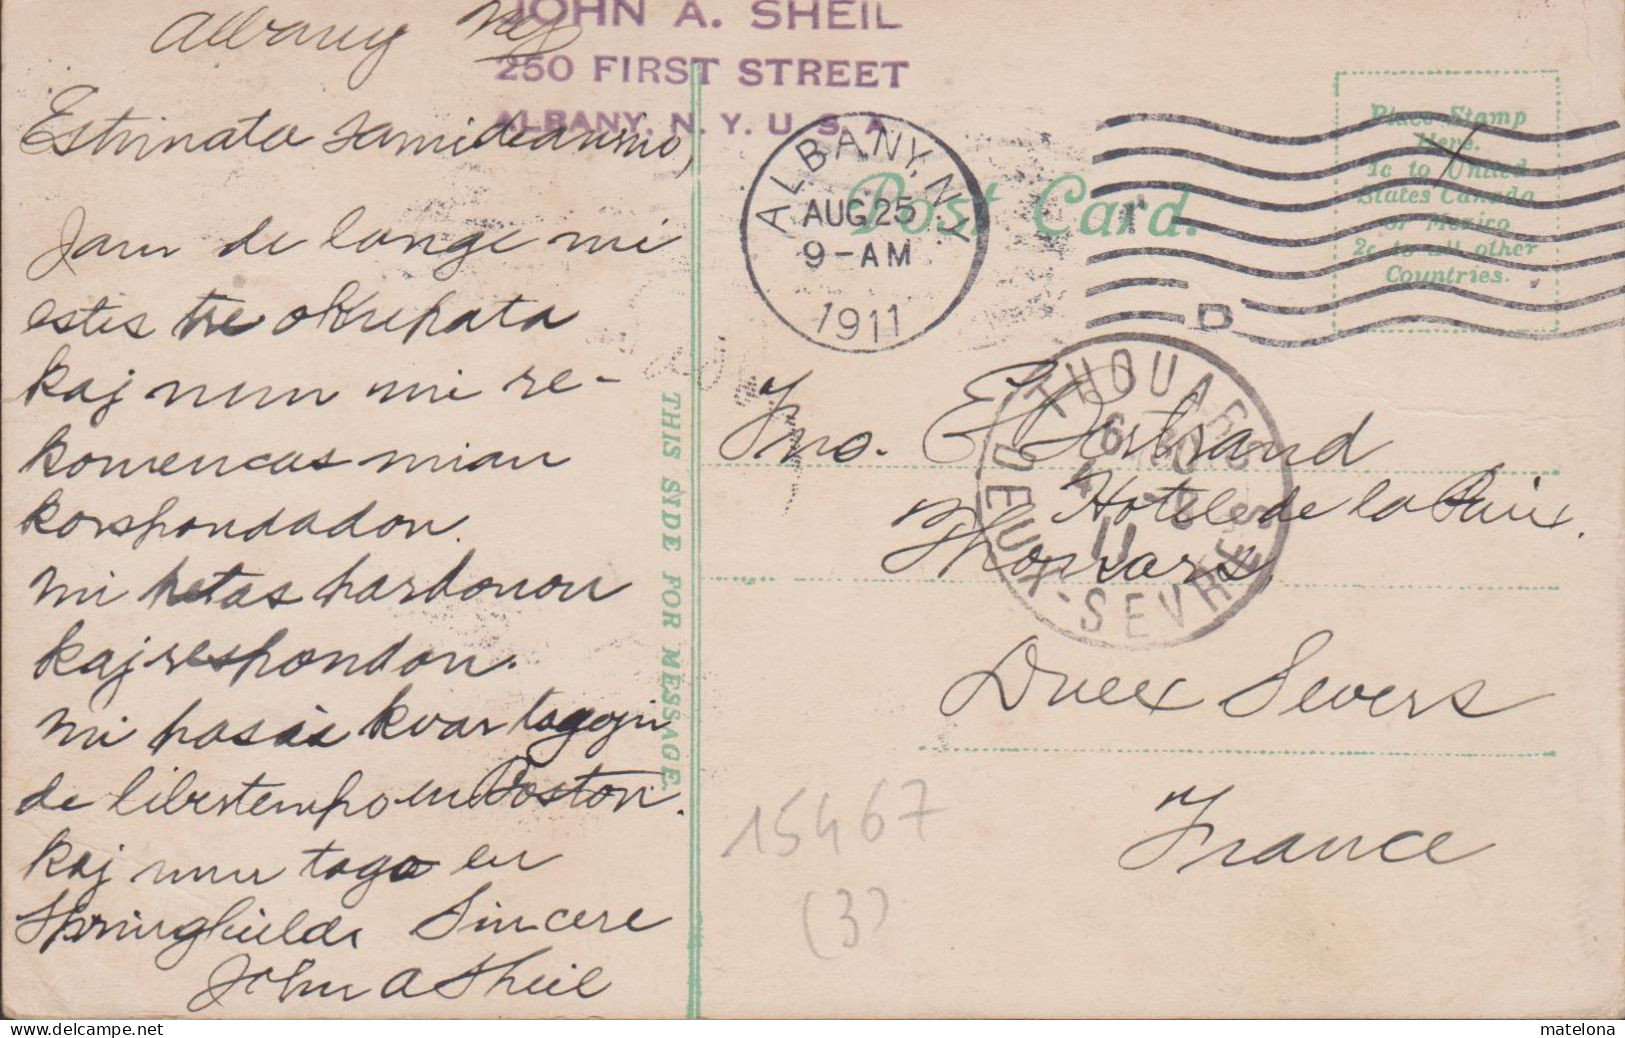 JOHN A. SHEIL
250 FIRST STREET
ALBANY, N. Y. U. S. A.
Albany NY
Estimata samideanino,
Jam de longe mi
estis tre okupata
kaj nun mi re-
komencas mian
korspondadon.
mi petas pardonon
kaj respondon.
mi pasis kvar tagojn
de libertempo en Boston.
kaj unu tago en
Springfield Sincere
John A Sheil
THIS SIDE FOR MESSAGE.
ALBANY, N.Y.
AUG 25
9-AM
1911
D
Post Card.
Place Stamp
Here.
1c to United
States Canada
or Mexico
2c to all other
Countries.
THOUARS
DEUX-SEVRES
Jno. E Bertrand
Hotel de la Paix.
Thouars,
Duex Severs
France
15467
(3)
delcampe.net
matelona